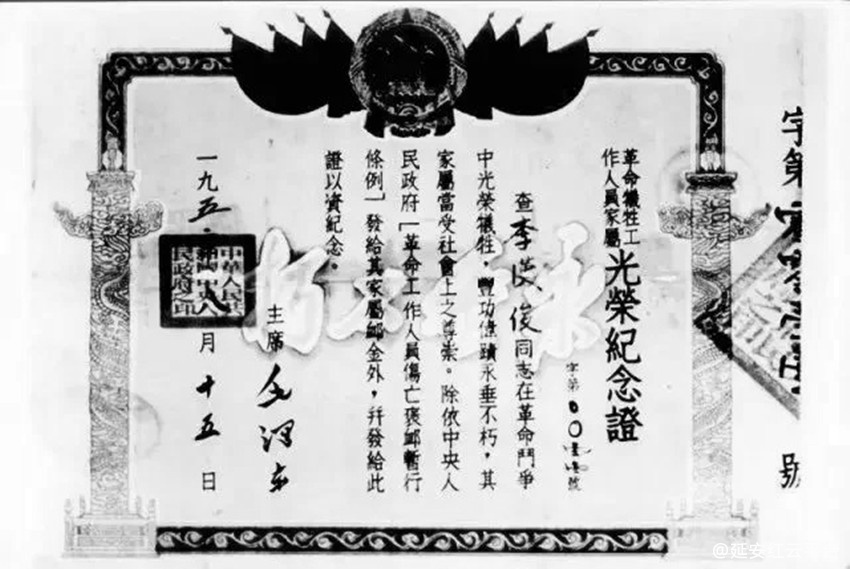 字第
號
革命犧牲工
作人員家屬
光榮紀念證
字第
號
查李 俊同志在革命鬥爭
中光榮犧牲,豐功偉蹟永垂不朽,其
家屬當受社會上之尊崇。除依中央人
民政府「革命工作人員傷亡褒卹暫行
條例」發給其家屬卹金外,幷發給此
證以資紀念。
永垂不朽
主席 毛澤东
一九五 月十五日
中華人民共
和國中央人
民政府之印
@延安